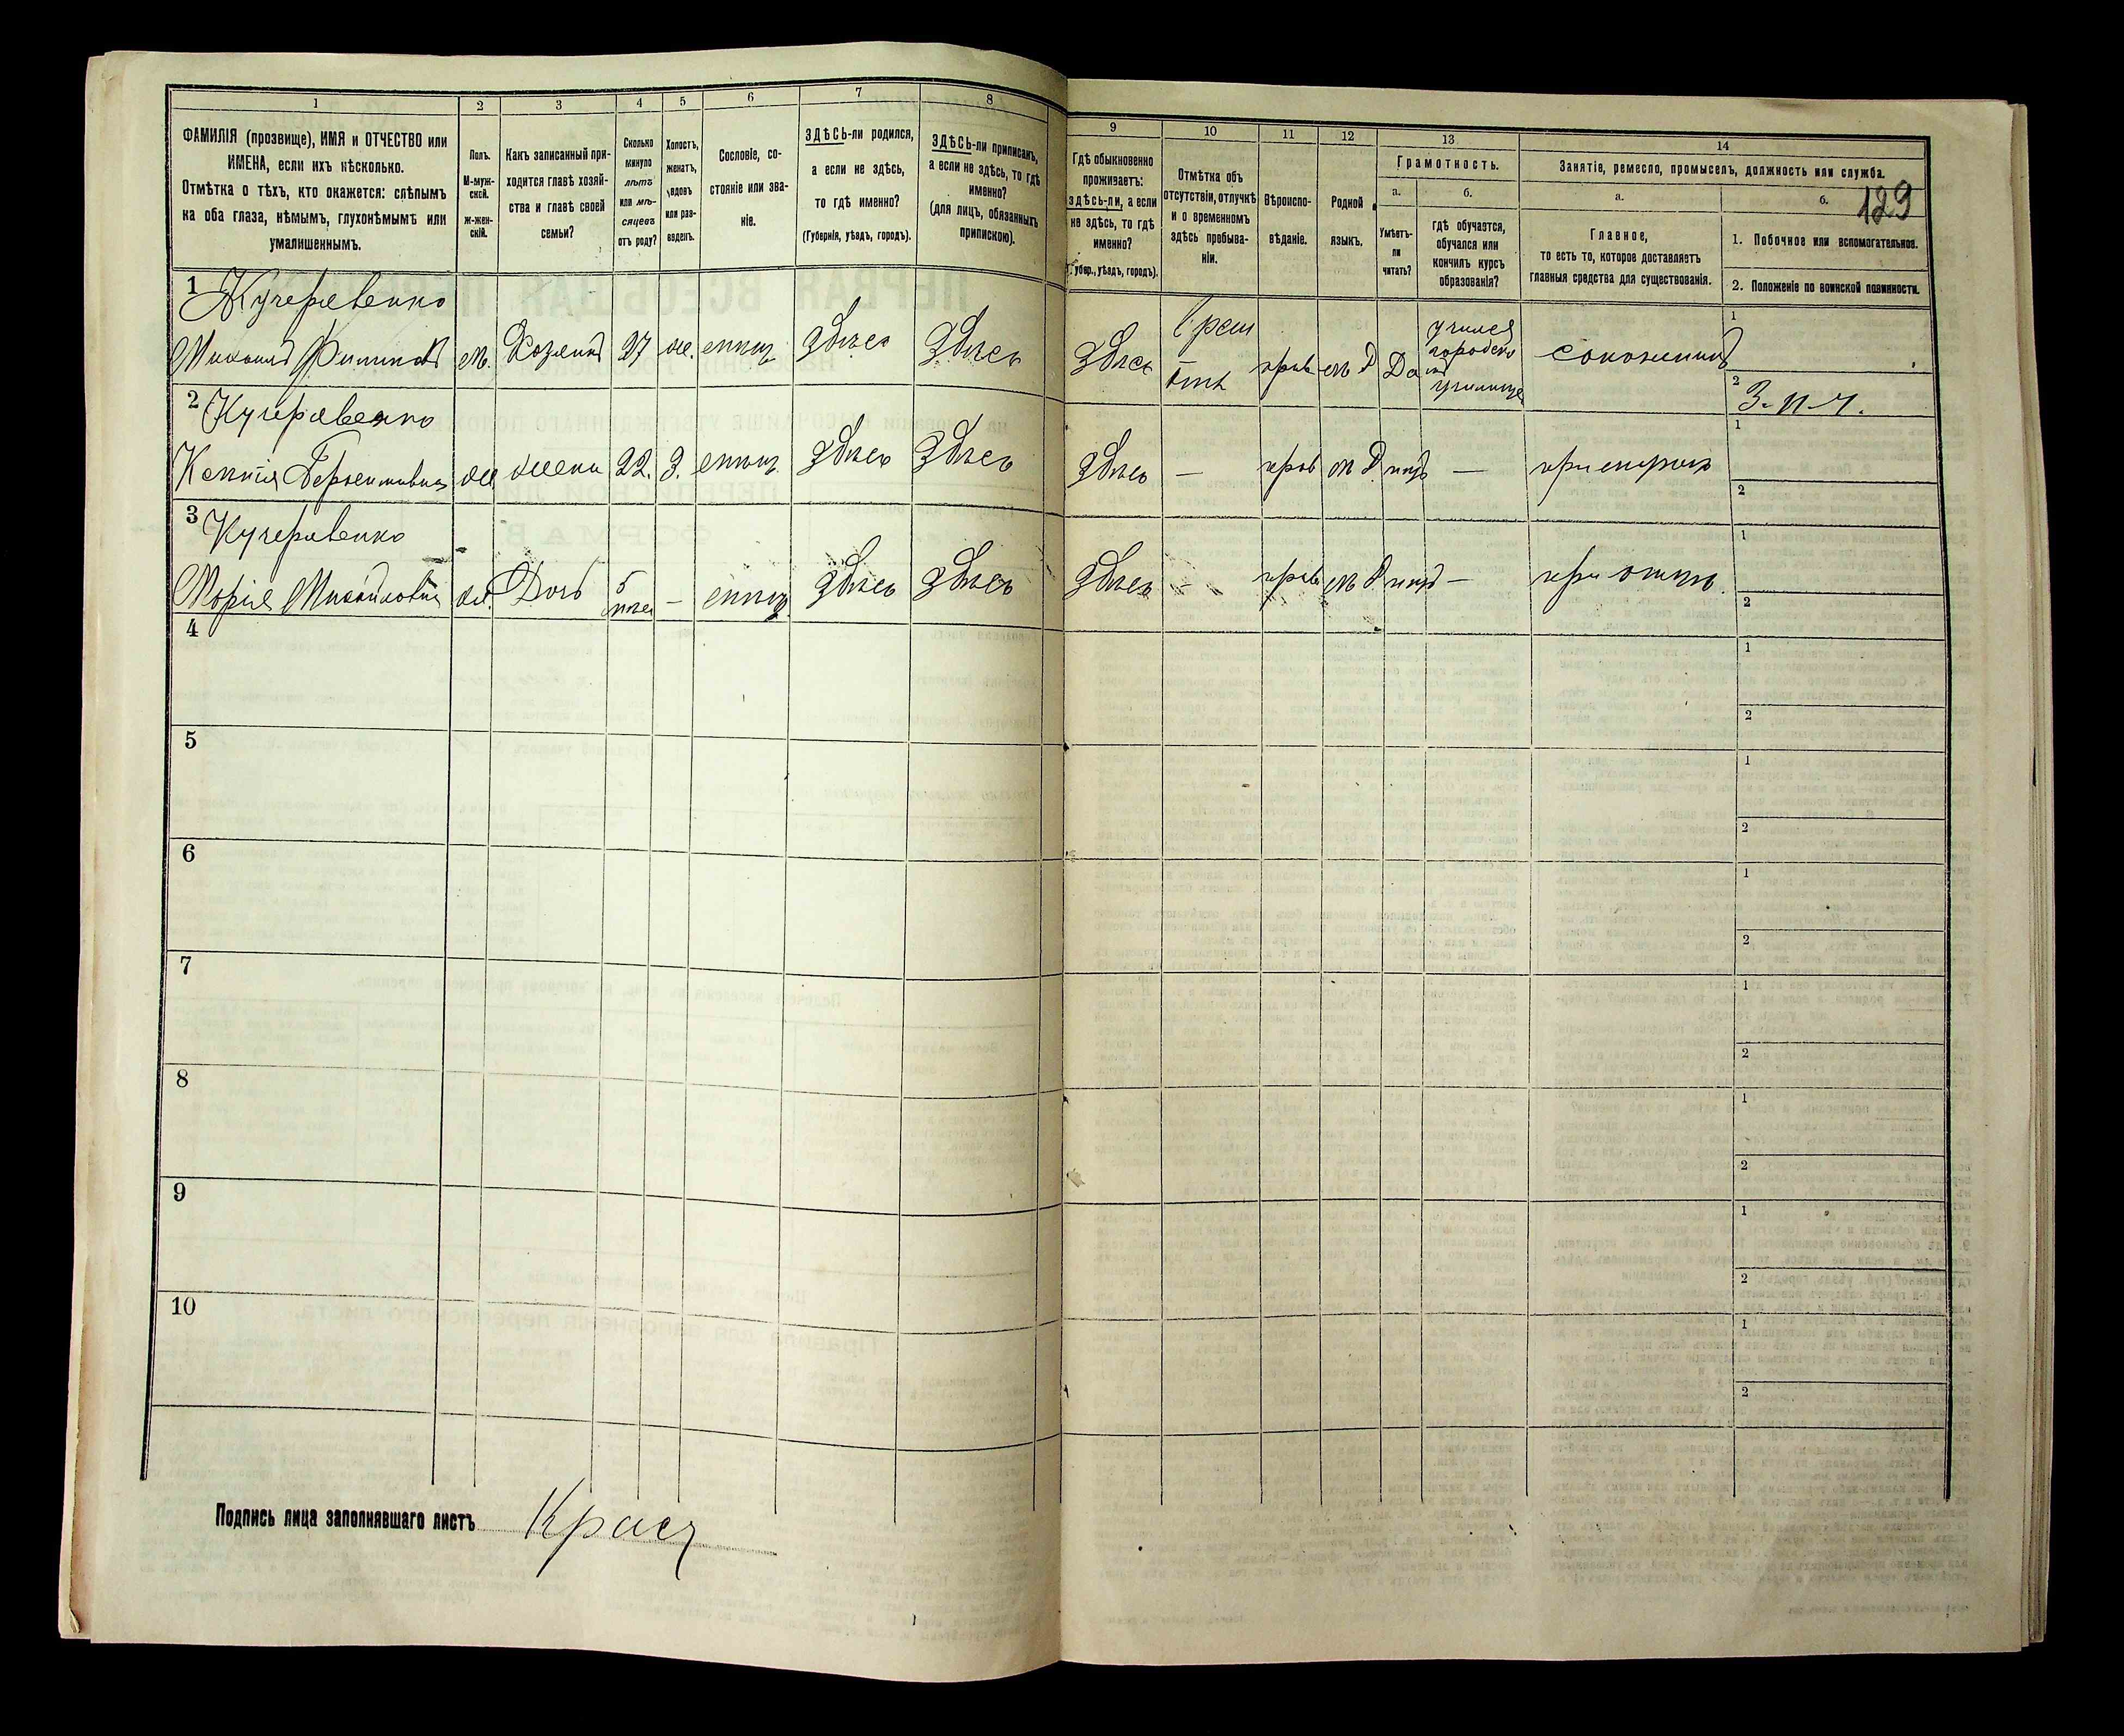 1 2 3 4 5 6 7 8
ФАМИЛІЯ (прозвище), ИМЯ и ОТЧЕСТВО или
ИМЕНА, если ихъ нѣсколько.
Отмѣтка о тѣхъ, кто окажется: слѣпымъ
на оба глаза, нѣмымъ, глухонѣмымъ или
умалишеннымъ.
Полъ.
М-муж-
ской.
ж-жен-
скій.
Какъ записанный при-
ходится главѣ хозяй-
ства и главѣ своей
семьи?
Сколько
минуло
лѣтъ
или мѣ-
сяцевъ
отъ роду?
Холостъ,
женатъ,
вдовъ
или раз-
веденъ.
Сословіе, со-
стояніе или зва-
ніе.
ЗДѢСЬ-ли родился,
а если не здѣсь,
то гдѣ именно?
(Губернія, уѣздъ, городъ).
ЗДѢСЬ-ли приписанъ,
а если не здѣсь, то гдѣ
именно?
(для лицъ, обязанныхъ
припискою).
9 10 11 12 13 14
129
Гдѣ обыкновенно
проживаетъ:
здѣсь-ли, а если
не здѣсь, то гдѣ
именно?
(Губер., уѣздъ, городъ).
Отмѣтка объ
отсутствіи, отлучкѣ
и о временномъ
здѣсь пребыва-
ніи.
Вѣроиспо-
вѣданіе.
Родной
языкъ.
Грамотность.
а. б.
Умѣетъ-
ли
читать?
гдѣ обучается,
обучался или
кончилъ курсъ
образованія?
Занятіе, ремесло, промыселъ, должность или служба.
а. б.
Главное,
то есть то, которое доставляетъ
главныя средства для существованія.
1. Побочное или вспомогательное.
2. Положеніе по воинской повинности.
1 Кучеравенко
Михаилъ м. Хозяинъ 27 ж. здѣсь здѣсь
здѣсь прав м Р Да сапожникъ
учился
городско
училище
1
2 З-п-ч.
2 Кучеравенко
Ксенія ж жена 22. З. здѣсь здѣсь
здѣсь — прав м Р. нѣтъ —
1
2
3 Кучеравенко
Марія Михайловна ж. Дочь 5 — здѣсь здѣсь
здѣсь — прав м Р. нѣтъ — при отцѣ
1
2
4
1
2
5
1
2
6
1
2
7
1
2
8
1
2
9
1
2
10
1
2
Подпись лица заполнявшаго листъ